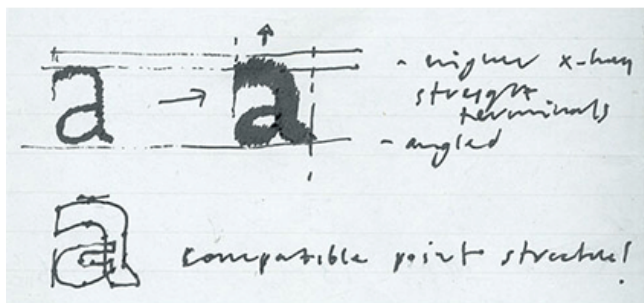 a → a
- higher x-hey
streight
terminals
- angled
a compatible point structure!